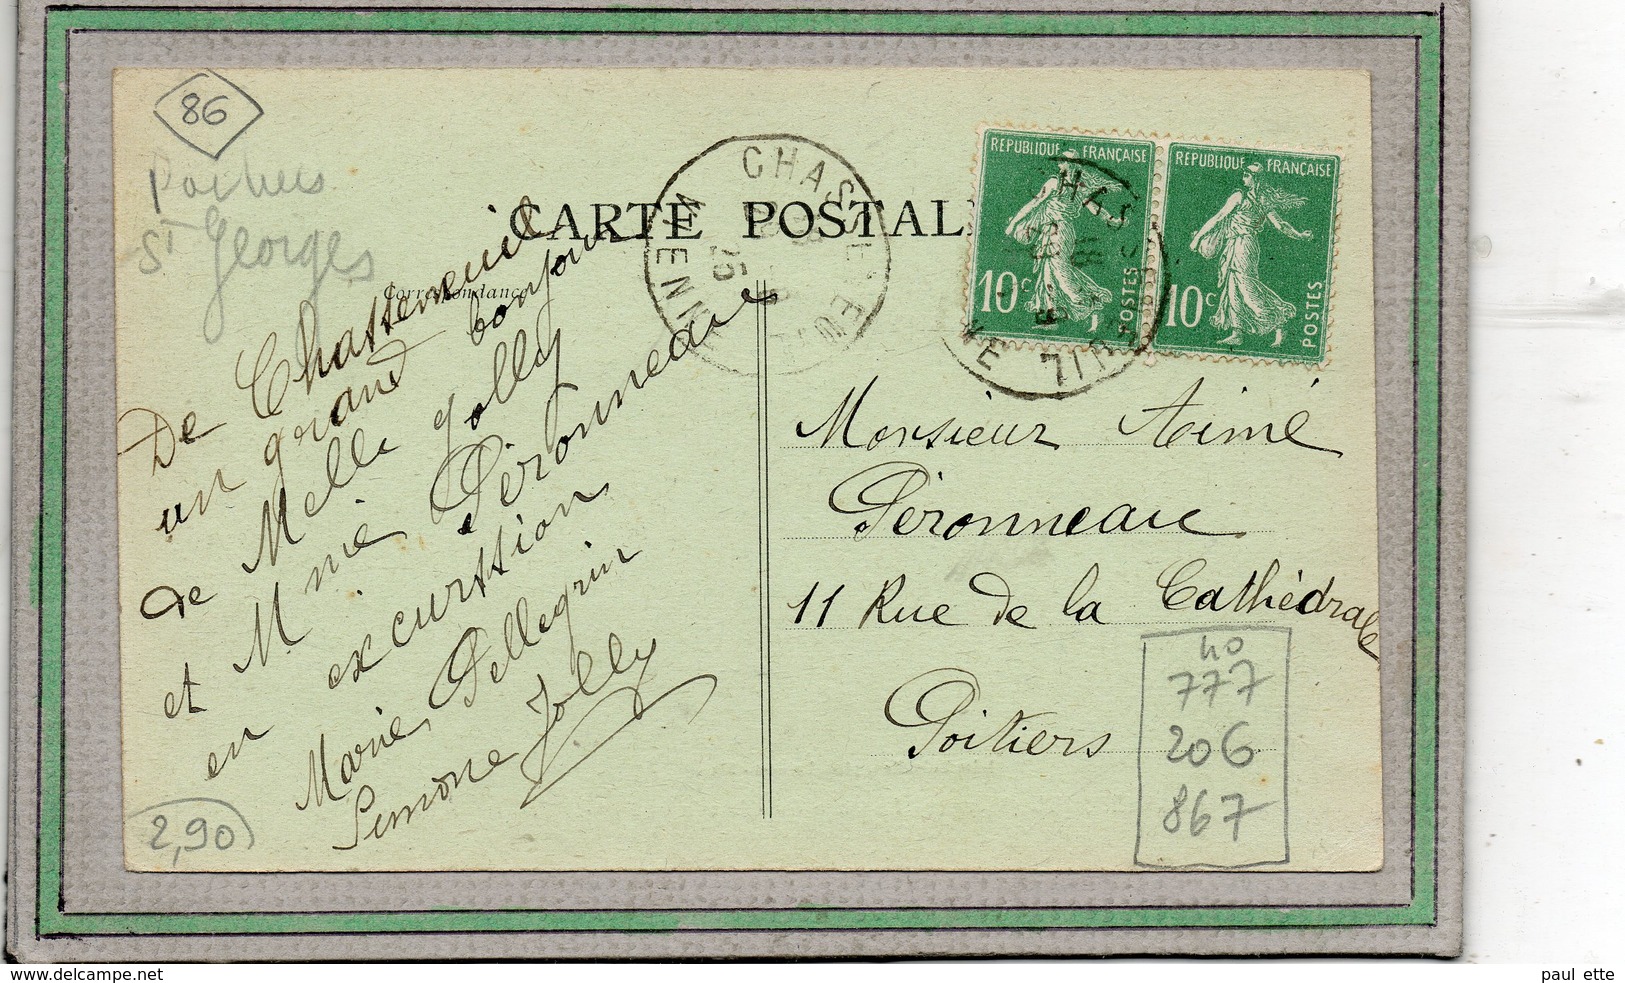 86
Poitiers
St Georges
CARTE POSTAL
Correspondance
De Chasseneuil
un grand bonjour
de Melle Jolly
et Mme Péronneau
en excurssion
Marie Pellegrin
Simone Jolly
2,90
CHASSENEUIL
VIENNE
25
REPUBLIQUE FRANÇAISE
10c
POSTES
REPUBLIQUE FRANÇAISE
10c
POSTES
Monsieur Aimé
Péronneau
11 Rue de la Cathédrale
Poitiers
40
777
206
867
www.delcampe.net
paul ette